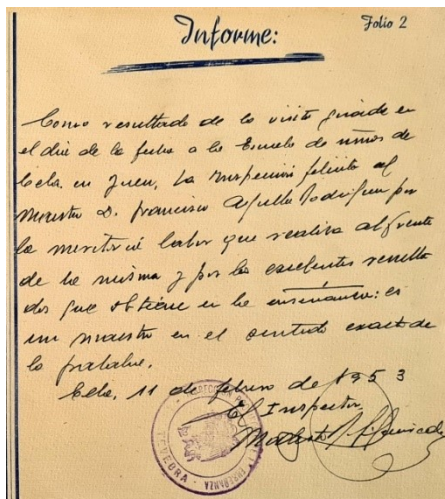 Informe:
Folio 2
Como resultado de la visita girada en
el día de la fecha a la Escuela de niños de
Cela, en Bueu, la Inspección felicita al
Maestro D. Francisco Rodríguez por
la meritoria labor que realiza al frente
de la misma y por los excelentes resulta
dos que obtiene en la enseñanza: es
un maestro en el sentido exacto de
la palabra.
Cela, 11 de febrero de 1953
El Inspector,